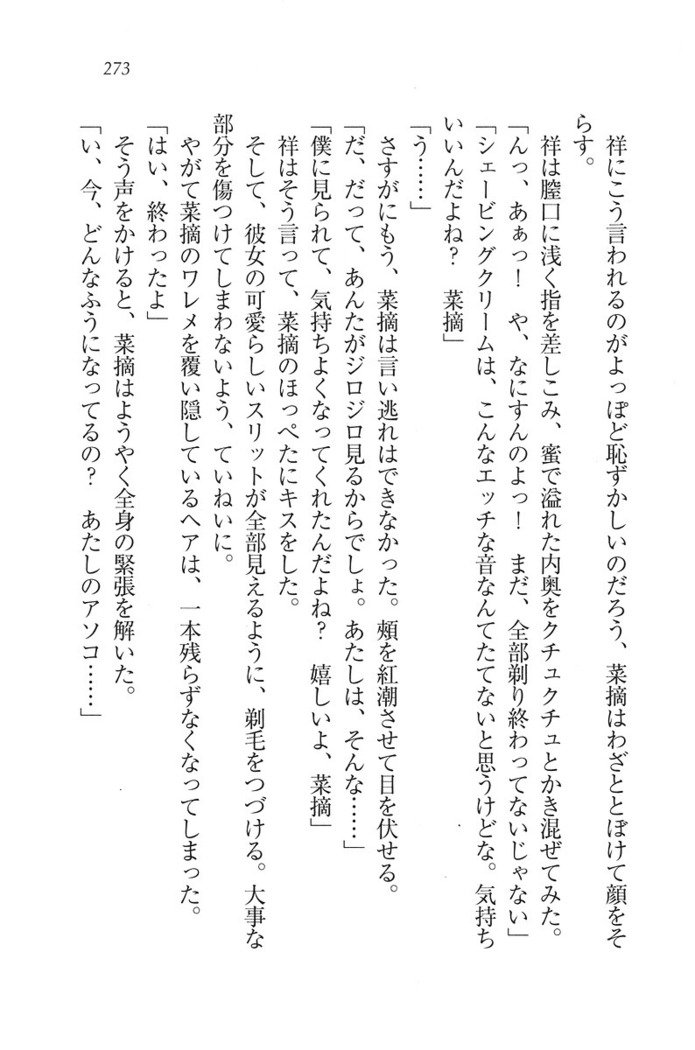 273
祥にこう言われるのがよっぽど恥ずかしいのだろう、菜摘はわざととぼけて顔をそ
らす。
祥は膣口に浅く指を差しこみ、蜜で溢れた内奥をクチュクチュとかき混ぜてみた。
「んっ、あぁっ！　や、なにすんのよっ！　まだ、全部剃り終わってないじゃない」
「シェービングクリームは、こんなエッチな音なんてたてないと思うけどな。気持ち
いいんだよね？　菜摘」
「う……」
さすがにもう、菜摘は言い逃れはできなかった。頰を紅潮させて目を伏せる。
「だ、だって、あんたがジロジロ見るからでしょ。あたしは、そんな……」
「僕に見られて、気持ちよくなってくれたんだよね？　嬉しいよ、菜摘」
祥はそう言って、菜摘のほっぺたにキスをした。
そして、彼女の可愛らしいスリットが全部見えるように、剃毛をつづける。大事な
部分を傷つけてしまわないよう、ていねいに。
やがて菜摘のワレメを覆い隠しているヘアは、一本残らずなくなってしまった。
「はい、終わったよ」
そう声をかけると、菜摘はようやく全身の緊張を解いた。
「い、今、どんなふうになってるの？　あたしのアソコ……」